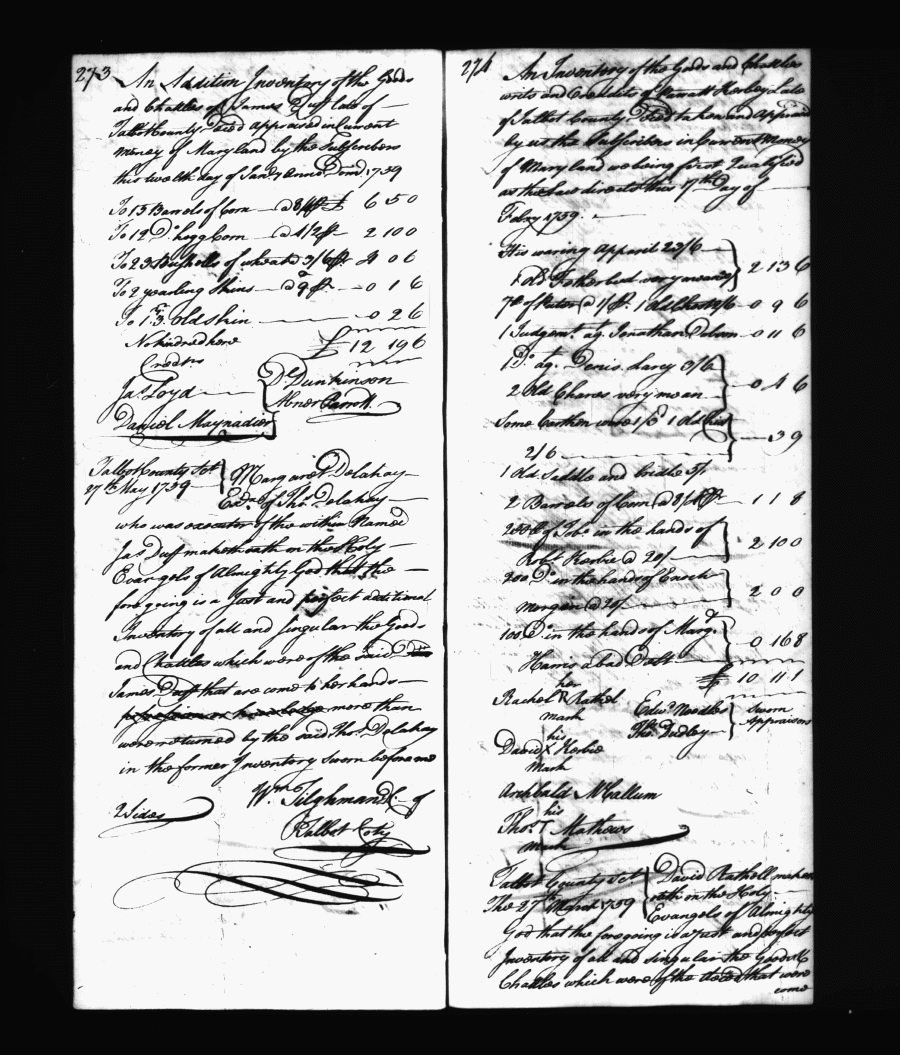 273
An Addition Inventory of the Goods
and Chattles of James Duff late of
Talbot County Decd appraised in Current
money of Maryland by the Subscribers
this twelth day of Jany Anno Dom 1759
To 15 Barrels of Corn a 8/4 £ 6 5 0
To 12 Do hogg Corn a 4/2 2 10 0
To 23 Bushells of wheat a 3/6 4 0 6
To 2 yearling Skins a 9 0 1 6
To 1 old skin 0 2 6
No kindred here £ 12 19 6
Credtrs
Jas Loyd Dl Dunkinson
Daniel Maynadier Abner Parrott
Talbot County Sct Margaret Delahay
27th May 1759 Exx of Thos Delahay
who was executor of the within Named
Jas Duff maketh oath on the Holy
Evangels of Almighty God that the
fore going is a Just and perfect additional
Inventory of all and Singular the Goods
and Chattles which were of the said
James Duff that are come to her hands
possession or knowledge more than
were returned by the said Thos Delahay
in the former Inventory Sworn before me
2 Sides Wm Tilghman of
Talbot Coty
274
An Inventory of the Goods and Chattles
writs and Credits of Kerbey Late
of Talbot County Decd taken and appraised
by us the Subscribers in Current Money
of Maryland we being first Qualified
as the Law directs this 17th Day of
Febry 1759
His waring Apparil 23/6
1 old Fether bed very meanly 2 13 6
7 lb of Puter @ 1/ 1 old Chest 0 9 6
1 Judgemt ag. Jonathan 0 11 6
1 Do ag. Denis Larey 3/6
2 Old Chares very mean 0 4 6
Some Earthen ware 1/3 1 old
2/6 3 9
1 Old Saddle and bridle 5/
2 Barrels of Corn @ 8/4 1 1 8
of Tobo in the hands of
Robt Kerbie @ 20/ 2 10 0
200 Do in the hands of Enoch
morgain @ 20/ 2 0 0
100 Do in the hands of Margt
Harris a bad Debt 0 16 8
£ 10 11 1
her
Rachel R Rathel Edwd Needles Sworn
mark Thos Dudley Appraisors
his
David X Kerbie
Mark
Archbald McCallum
his
Thos T Mathews
mark
Talbot County Sct David Rathell maketh
The 27th March 1759 oath on the Holy
Evangels of Almighty
God that the foregoing is a just and perfect
Inventory of all and singular the Goods &
Chattles which were of the decd that were
come